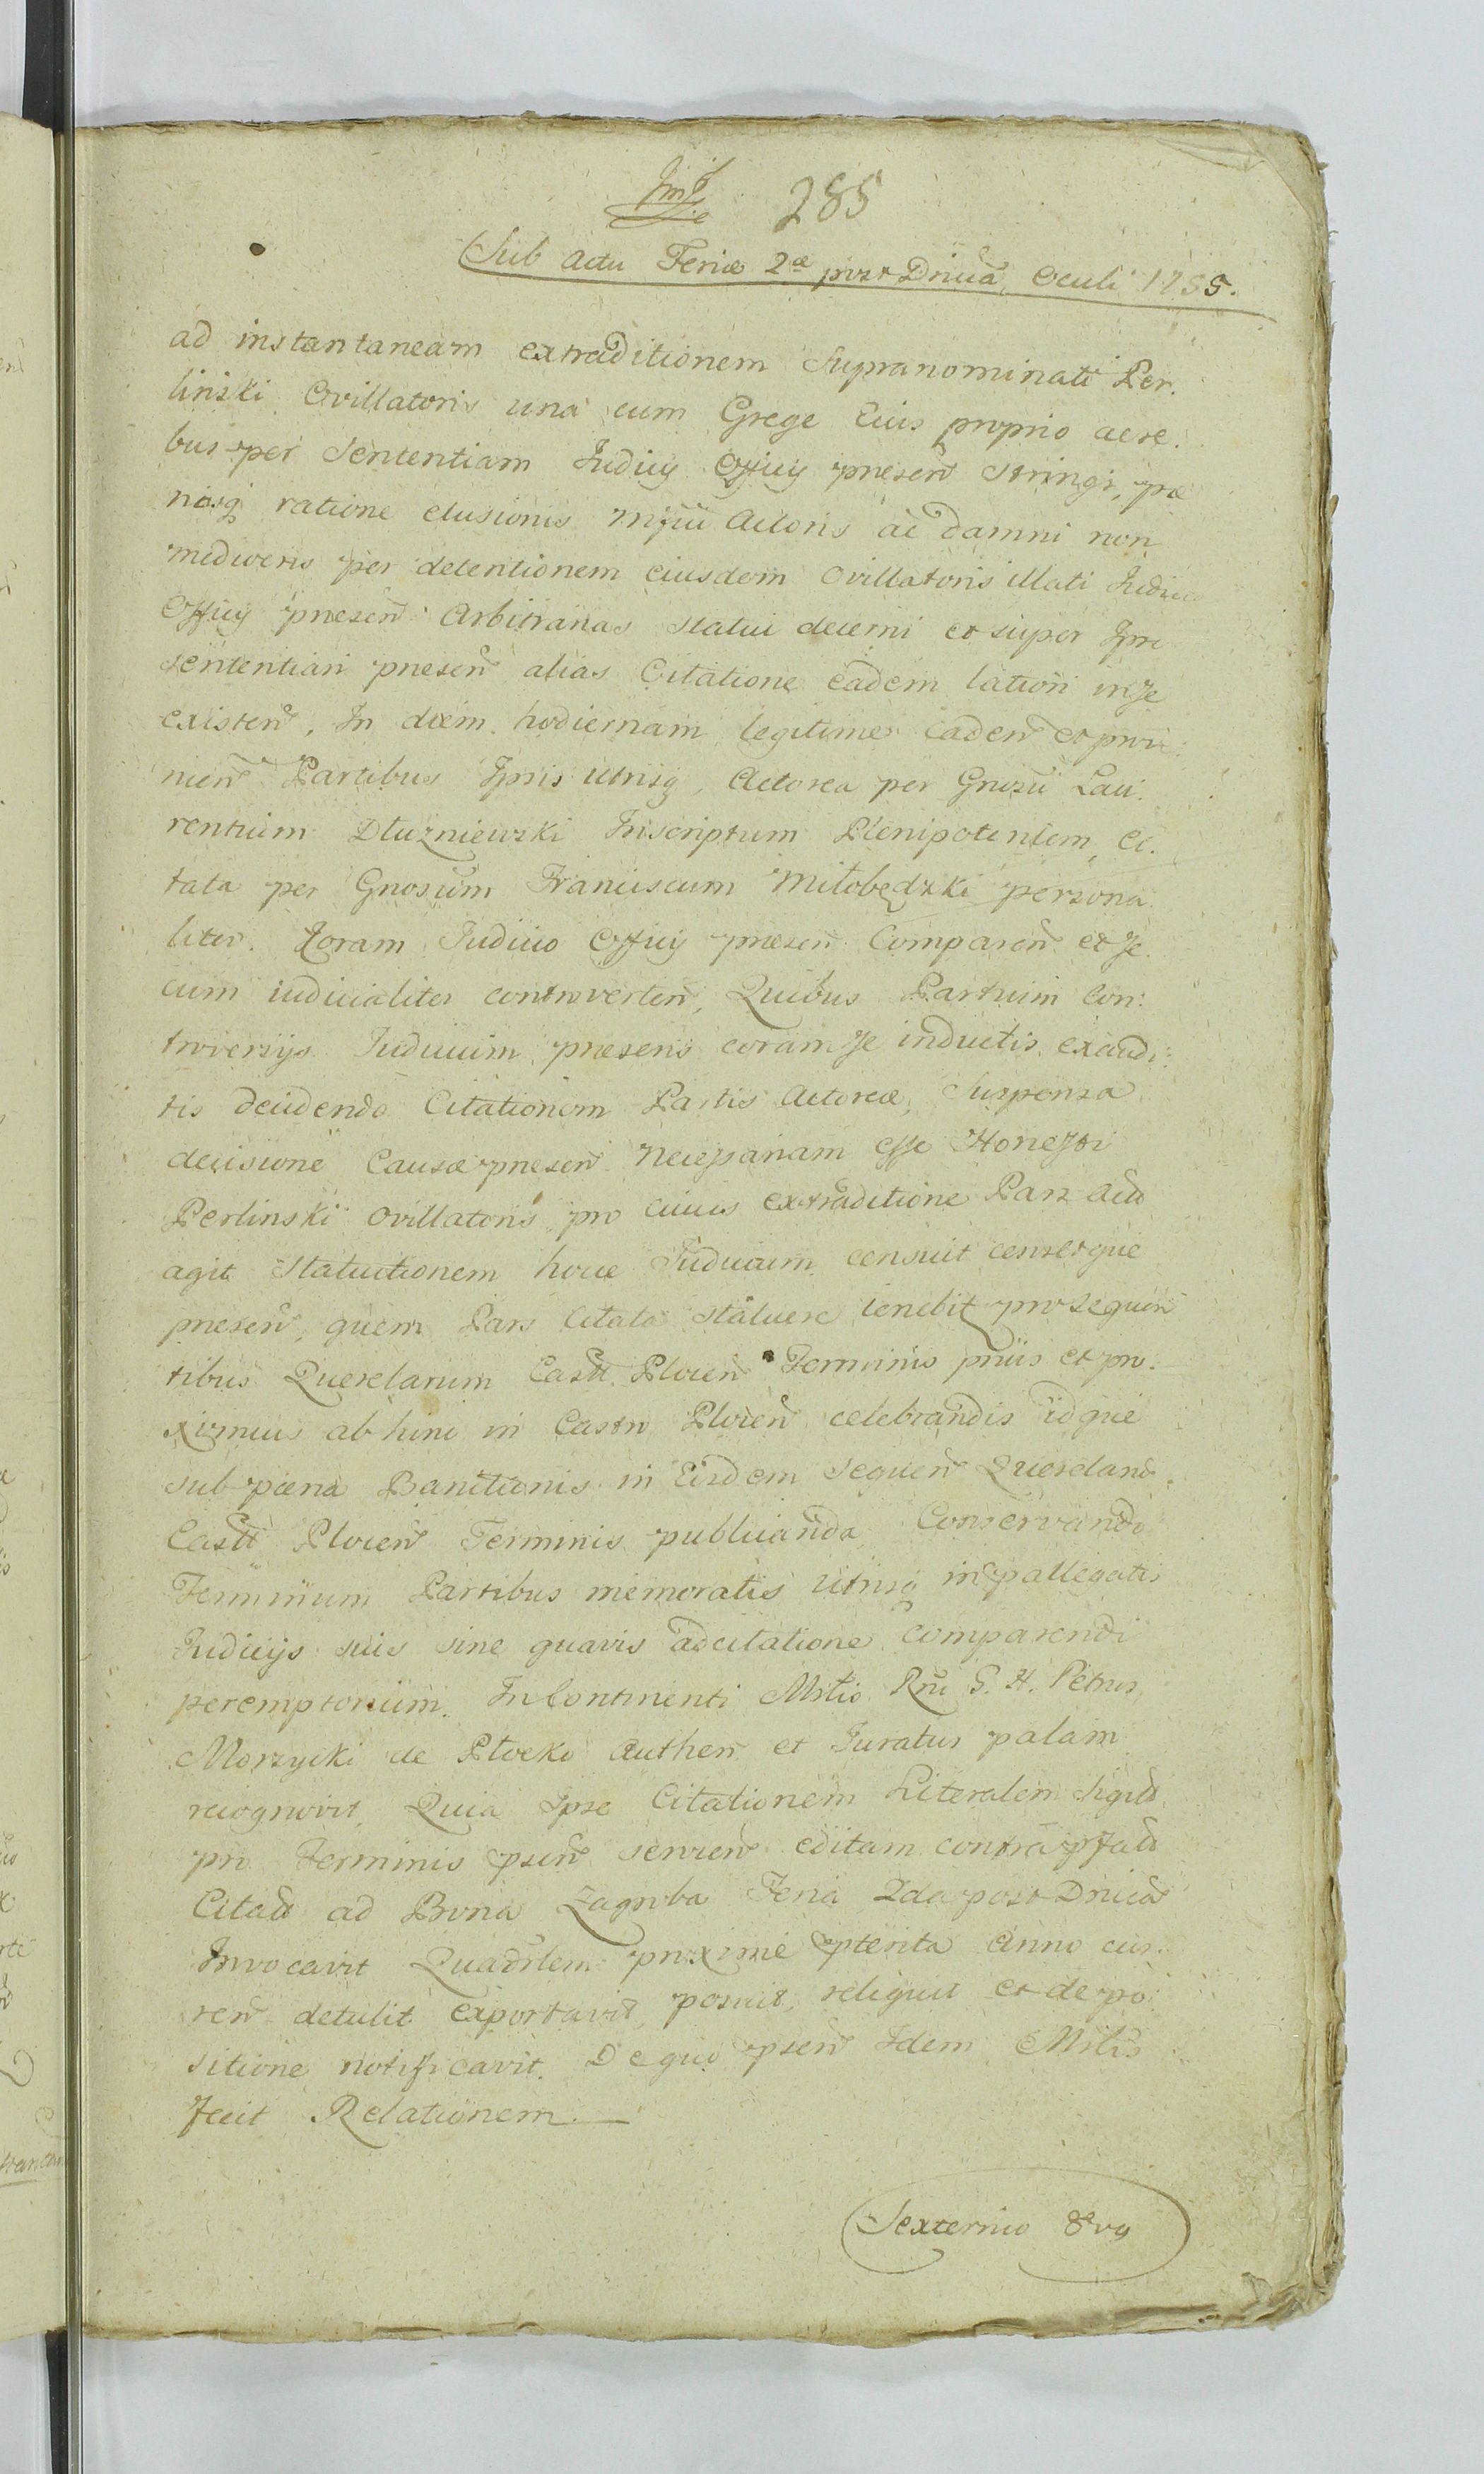 285
Sub Actu Feriæ 2æ post Dnicã Oculi 1755.
ad instantaneam extraditionem Supranominati Per.
linski Ovillatoris una cum Grege Eius proprio aere.
bus per Sententiam Judicy Officy præsen Stringi, pæ
nisq ratione elusionis Actoris ac damni non
mediocris per detentionem eiusdem Ovillatoris illati Judicio
Officy præsen Arbitrarias statui decerni et super
sententiam præsen alias Citatione eadem latiori in se
existen. In diem hodiernam legitime caden et prove:
nien Partibus Ipsis utrisq, Actorea per Gnosũ Lau:
rentium Dłużniewski Inscriptum Plenipotentem, Ci.
tata per Gnosum Franciscum Miłobędzki persona
liter. Coram Judicio Officy præsen Comparen et se
cum iudicialiter controverten, Quibus Partium Con:
troversijs Judicium præsens coram se inductis exaudi:
tis decidendo Citationem Partis Actoreæ, Suspensa
decisione Causæ præsen Necessariam esse Honesti
Perlinski Ovillatoris pro cuius extraditione Pars Acto
agit Statuitionem hocce Judicium censuit censetque
præsen, quem Pars Citata statuere tenebit pro sequen
tibus Querelarum Castt Plocen Terminis priis et pro.
ximius ab hinc in Castro Plocen celebrandis idque
sub pæna Bannitionis in Eisdem sequen Querelarũ
Castt Plocen Terminis publicanda Conservando
Terminum Partibus memoratis utrisq in pallegatis
Judicijs suis sine quavis adcitatione comparendi
peremptorium. In Continenti Mstio Rni G. H. Petrus
Morzycki de Płocko Authen et Juratus palam
recognovit, Quia Ipse Citationem Literalem Sigill
pro Terminis psen servien editam contra
Citatt ad Bona Zagroba Feria 2da post Dnicã
Invocavit Quadrlem proxime pterita Anno cur:
ren detulit exportavit, posuit, reliquit et de po:
sitione notificavit. De quo psen Idem Mstis
fecit Relationem.
Sexternio 8vo